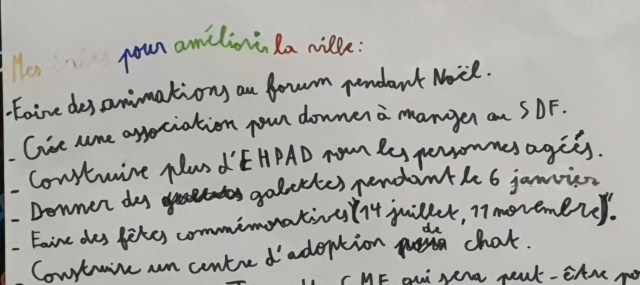 Mes idées pour améliorer la ville :
- Faire des animations au forum pendant Noël.
- Crée une association pour donner à manger au SDF.
- Construire plus d'EHPAD pour les personnes agées.
- Donner des galettes pendant le 6 janvier
- Faire des fêtes commémoratives (14 juillet, 11 novembre).
- Construire un centre d'adoption de chat.
CME qui sera peut-être